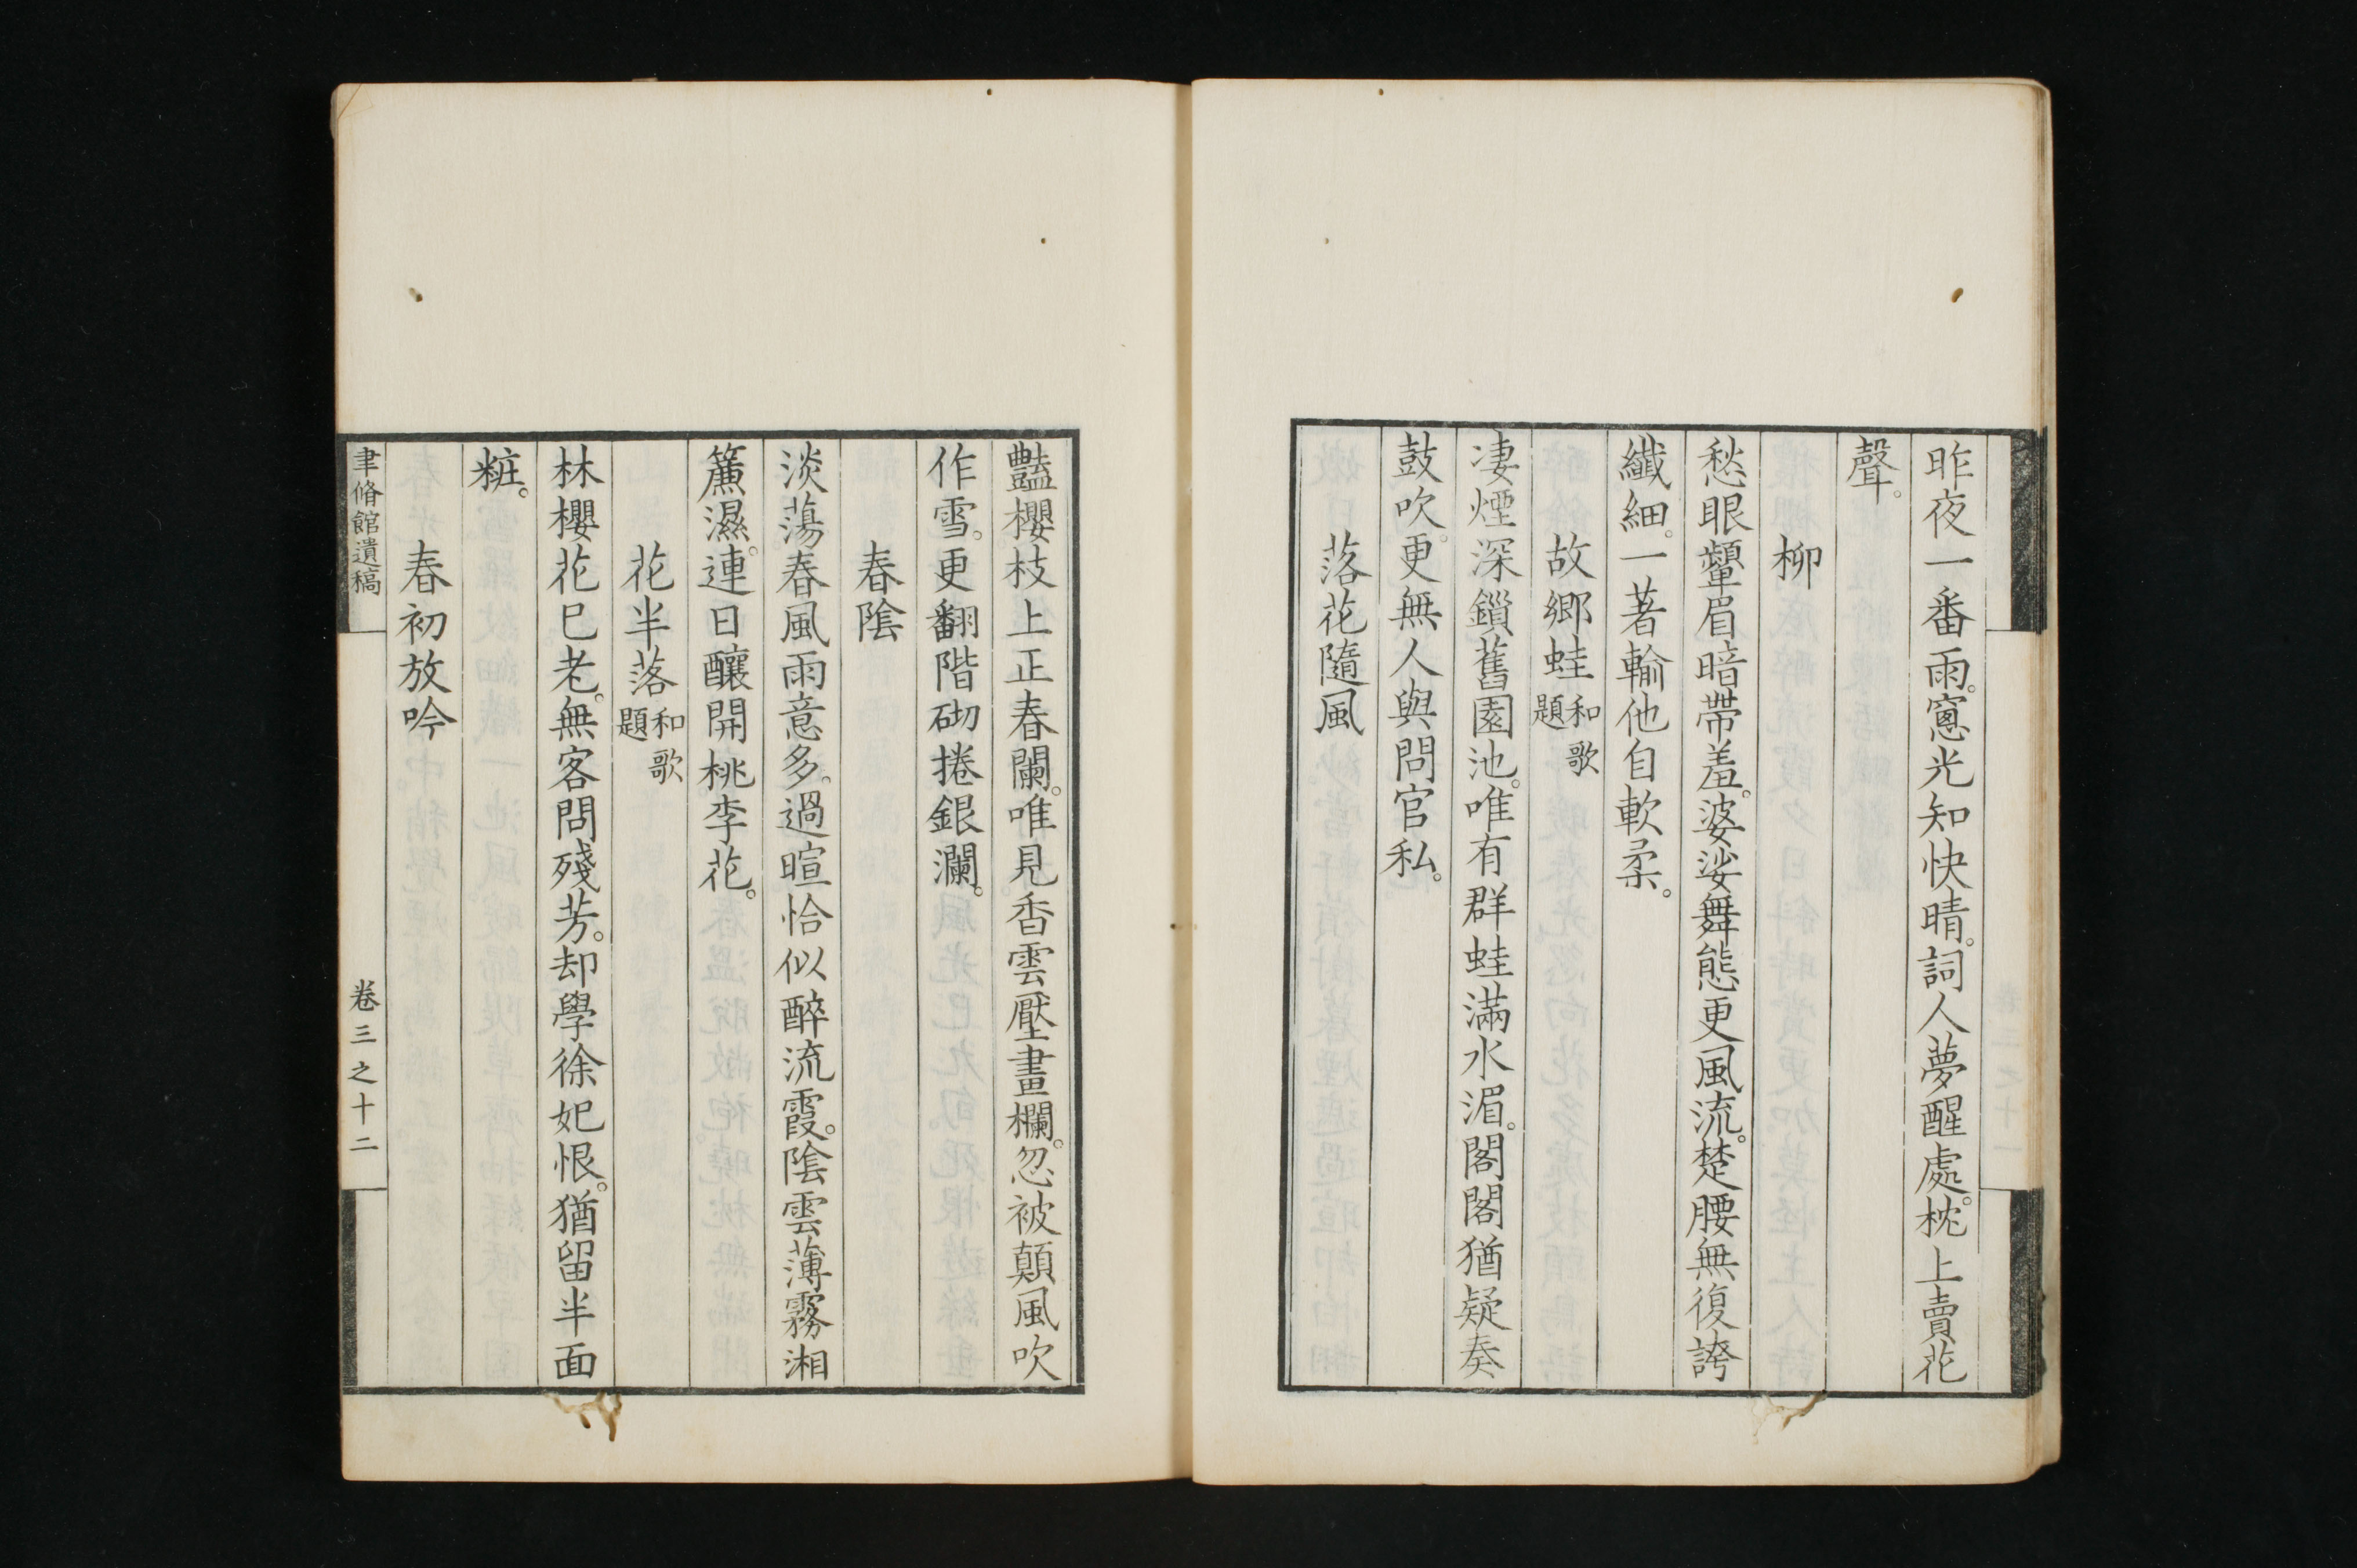 昨夜一番雨。窻光知快晴。詞人夢醒處。枕上賣花
聲。
柳
愁眼顰眉暗帶羞。婆娑舞態更風流。楚腰無復誇
纖細。一著輸他自軟柔。
故鄉蛙和歌題
凄煙深鎖舊園池。唯有群蛙滿水湄。閣閣猶疑奏
鼓吹。更無人與問官私。
落花隨風
豔櫻枝上正春闌。唯見香雲壓畫欄。忽被顛風吹
作雪。更翻階砌捲銀瀾。
春陰
淡蕩春風雨意多。過暄恰似醉流霞。陰雲薄霧湘
簾濕。連日釀開桃李花。
花半落和歌題
林櫻花已老。無客問殘芳。却學徐妃恨。猶留半面
粧。
春初放吟
聿脩館遺稿
卷三之十二